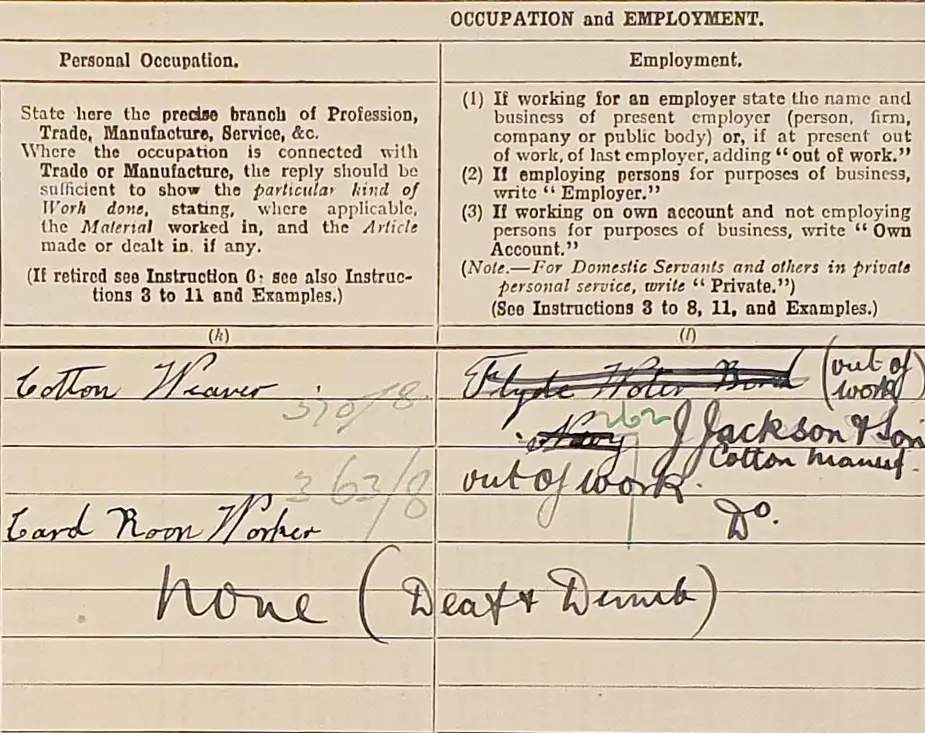 OCCUPATION and EMPLOYMENT.
Personal Occupation.
State here the precise branch of Profession,
Trade, Manufacture, Service, &c.
Where the occupation is connected with
Trade or Manufacture, the reply should be
sufficient to show the particular kind of
Work done, stating, where applicable,
the Material worked in, and the Article
made or dealt in, if any.
(If retired see Instruction 6; see also Instruc-
tions 3 to 11 and Examples.)
(k)
Employment.
(1) If working for an employer state the name and
business of present employer (person, firm,
company or public body) or, if at present out
of work, of last employer, adding "out of work."
(2) If employing persons for purposes of business,
write "Employer."
(3) If working on own account and not employing
persons for purposes of business, write "Own
Account."
(Note.—For Domestic Servants and others in private
personal service, write "Private.")
(See Instructions 3 to 8, 11, and Examples.)
(l)
Cotton Weaver 370/8 Fylde Water Bord (out of
work)
262 J Jackson & Son
Cotton Manuf.
363/8 out of work.
Card Room Worker Do.
None (Deaf & Dumb)